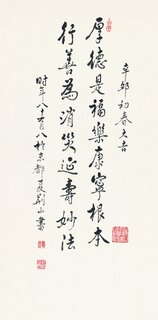 辛卯初春大吉
厚德是福樂康寧根本
行善為消災延壽妙法
时年八十有八於京都夏荆山書